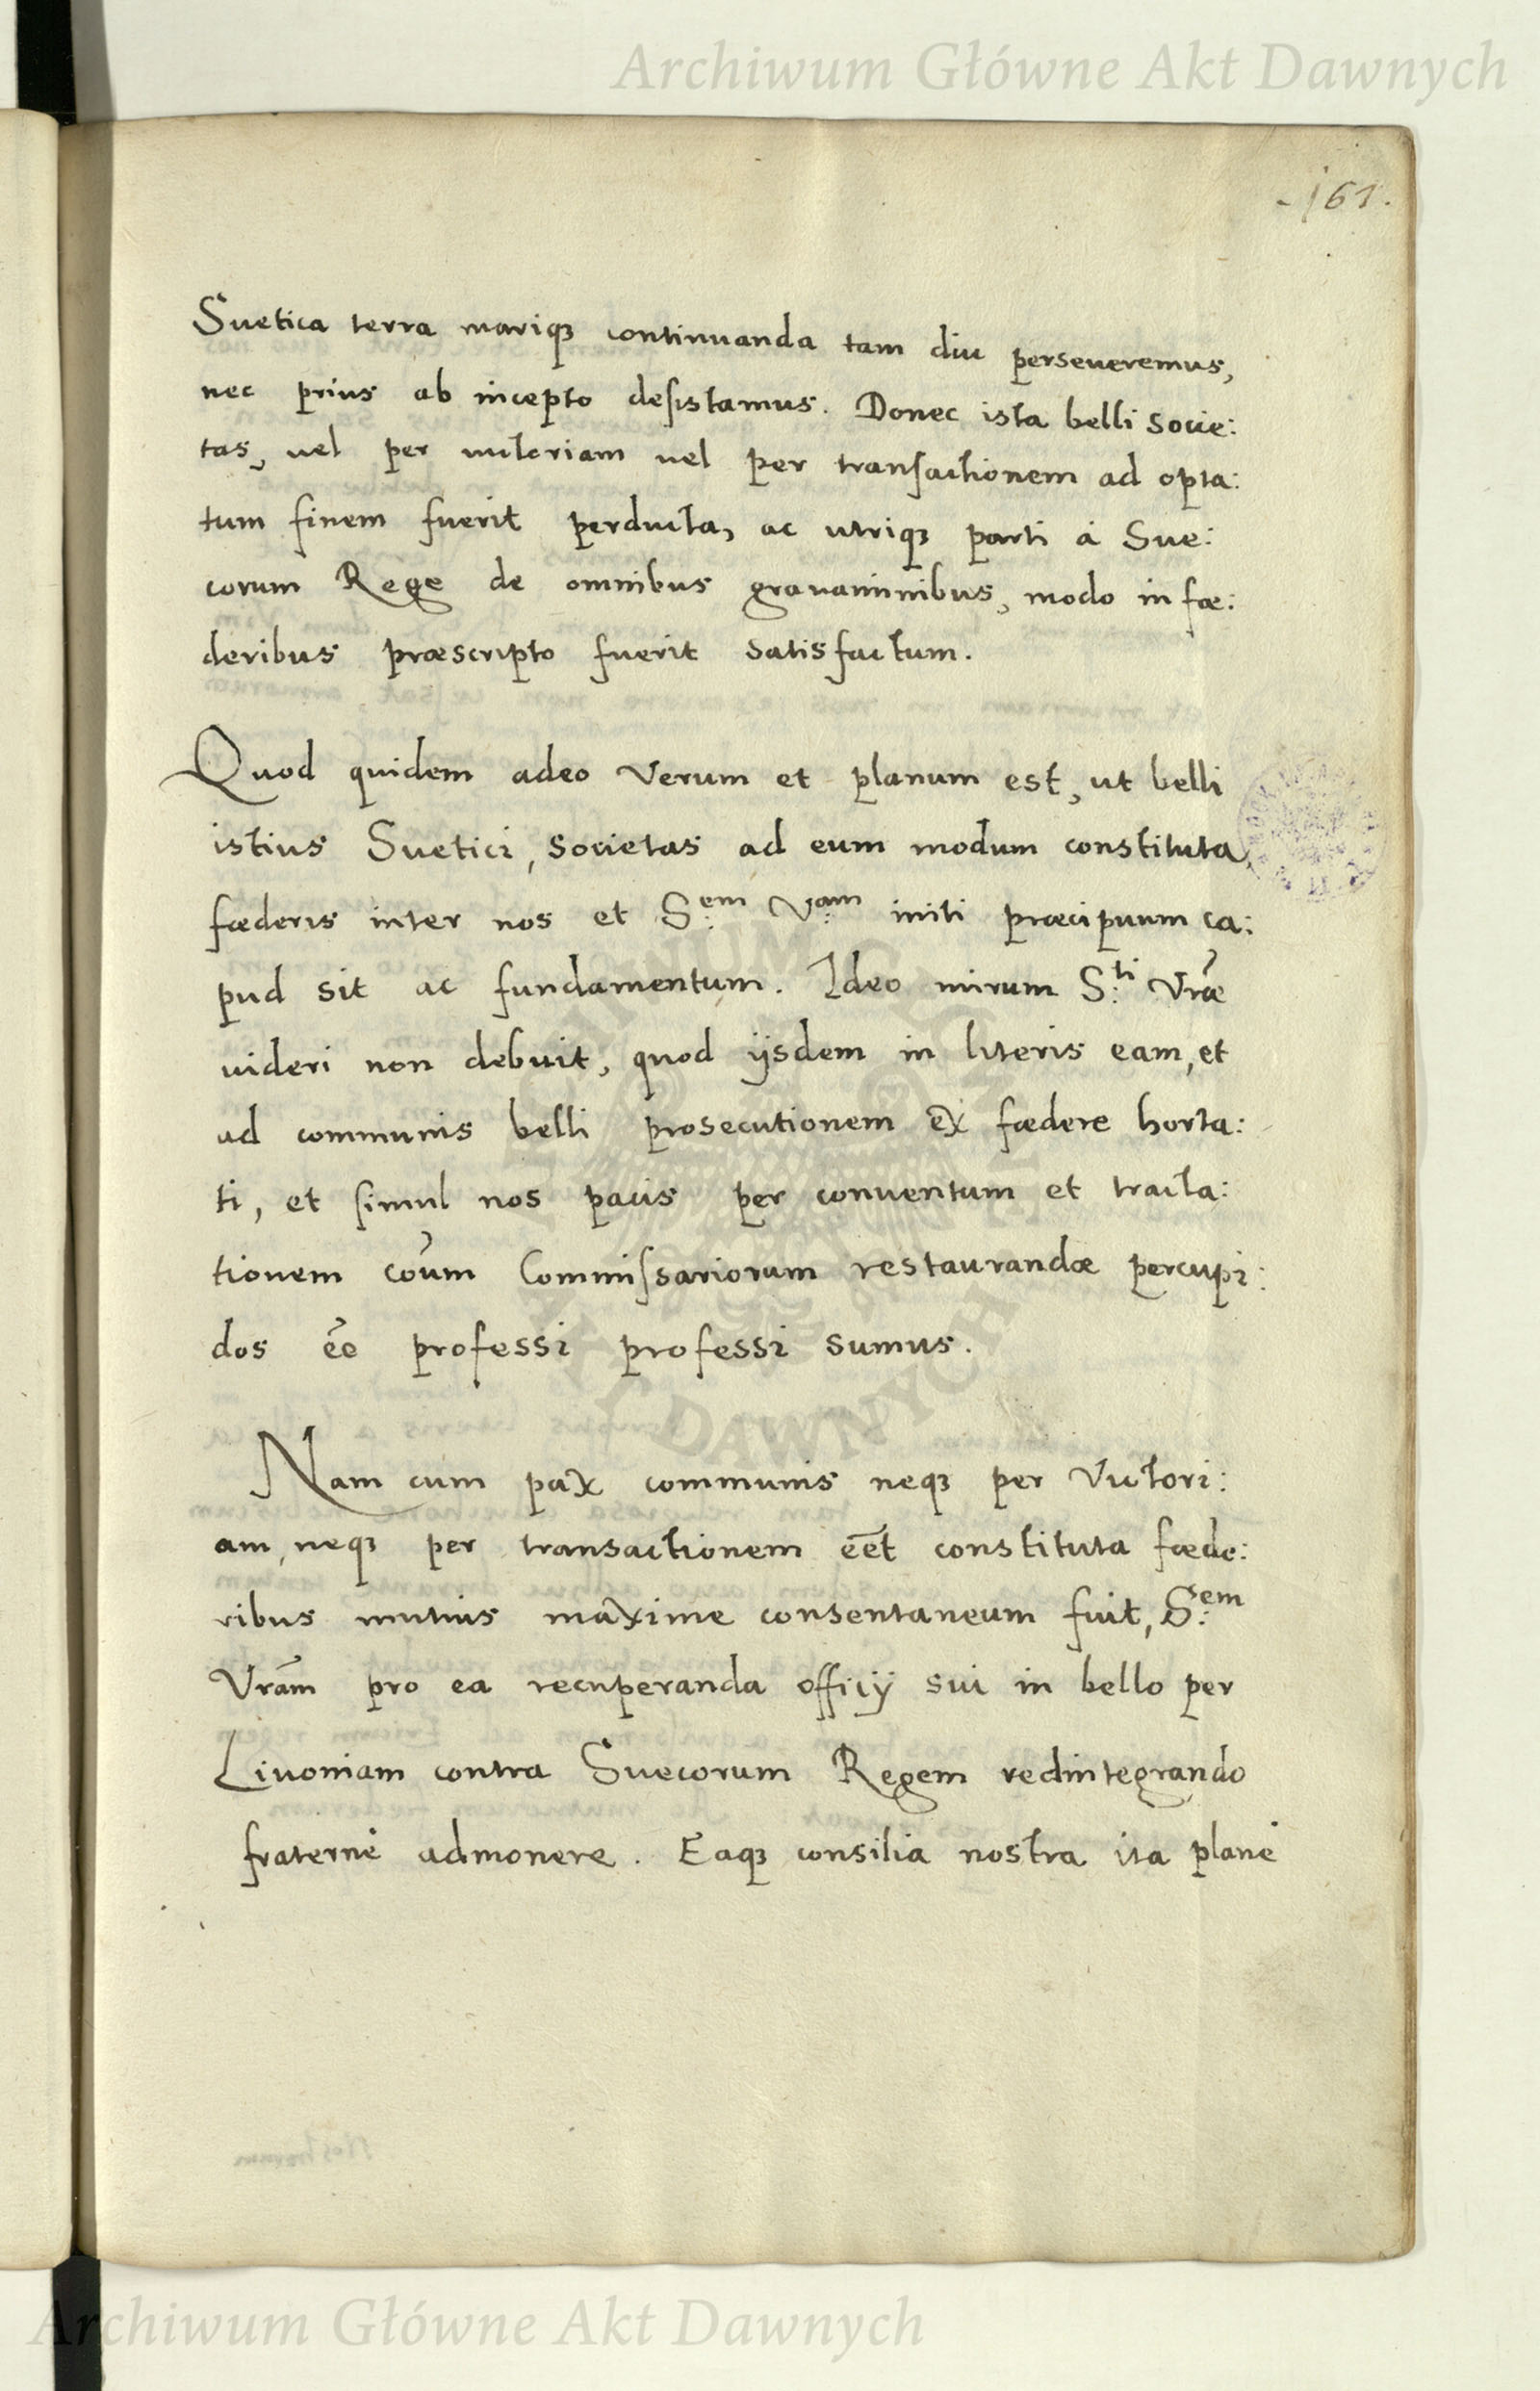 Archiwum Główne Akt Dawnych
161.
Suetica terra mariqꝫ continuanda tam diu perseueremus,
nec prius ab incepto desistamus. Donec ista belli socie:
tas, uel per uictoriam uel per transactionem ad opta:
tum finem fuerit perducta, ac utriqꝫ parti á Sue:
corum Rege de omnibus grauaminibus, modo in fœ:
deribus præscripto fuerit satisfactum.
Quod quidem adeo verum et planum est, ut belli
istius Suetici, societas ad eum modum constituta,
fœderis inter nos et S:em V:am initi præcipuum ca:
pud sit ac fundamentum. Ideo mirum S:ti Vr̃æ
uideri non debuit, quod ijsdem in literis eam, et
ad communis belli prosecutionem ex fœdere horta:
ti, et simul nos pacis per conuentum et tracta:
tionem cõum Commissariorum restaurandæ percupi:
dos ẽe professi professi sumus.
Nam cum pax communis neqꝫ per Victori:
am, neqꝫ per transactionem eẽt constituta fœde:
ribus mutuis maxime consentaneum fuit, S:em
Vrãm pro ea recuperanda officij sui in bello per
Liuoniam contra Suecorum Regem redintegrando
fraternè admonere. Eaqꝫ consilia nostra ita planè
Archiwum Główne Akt Dawnych